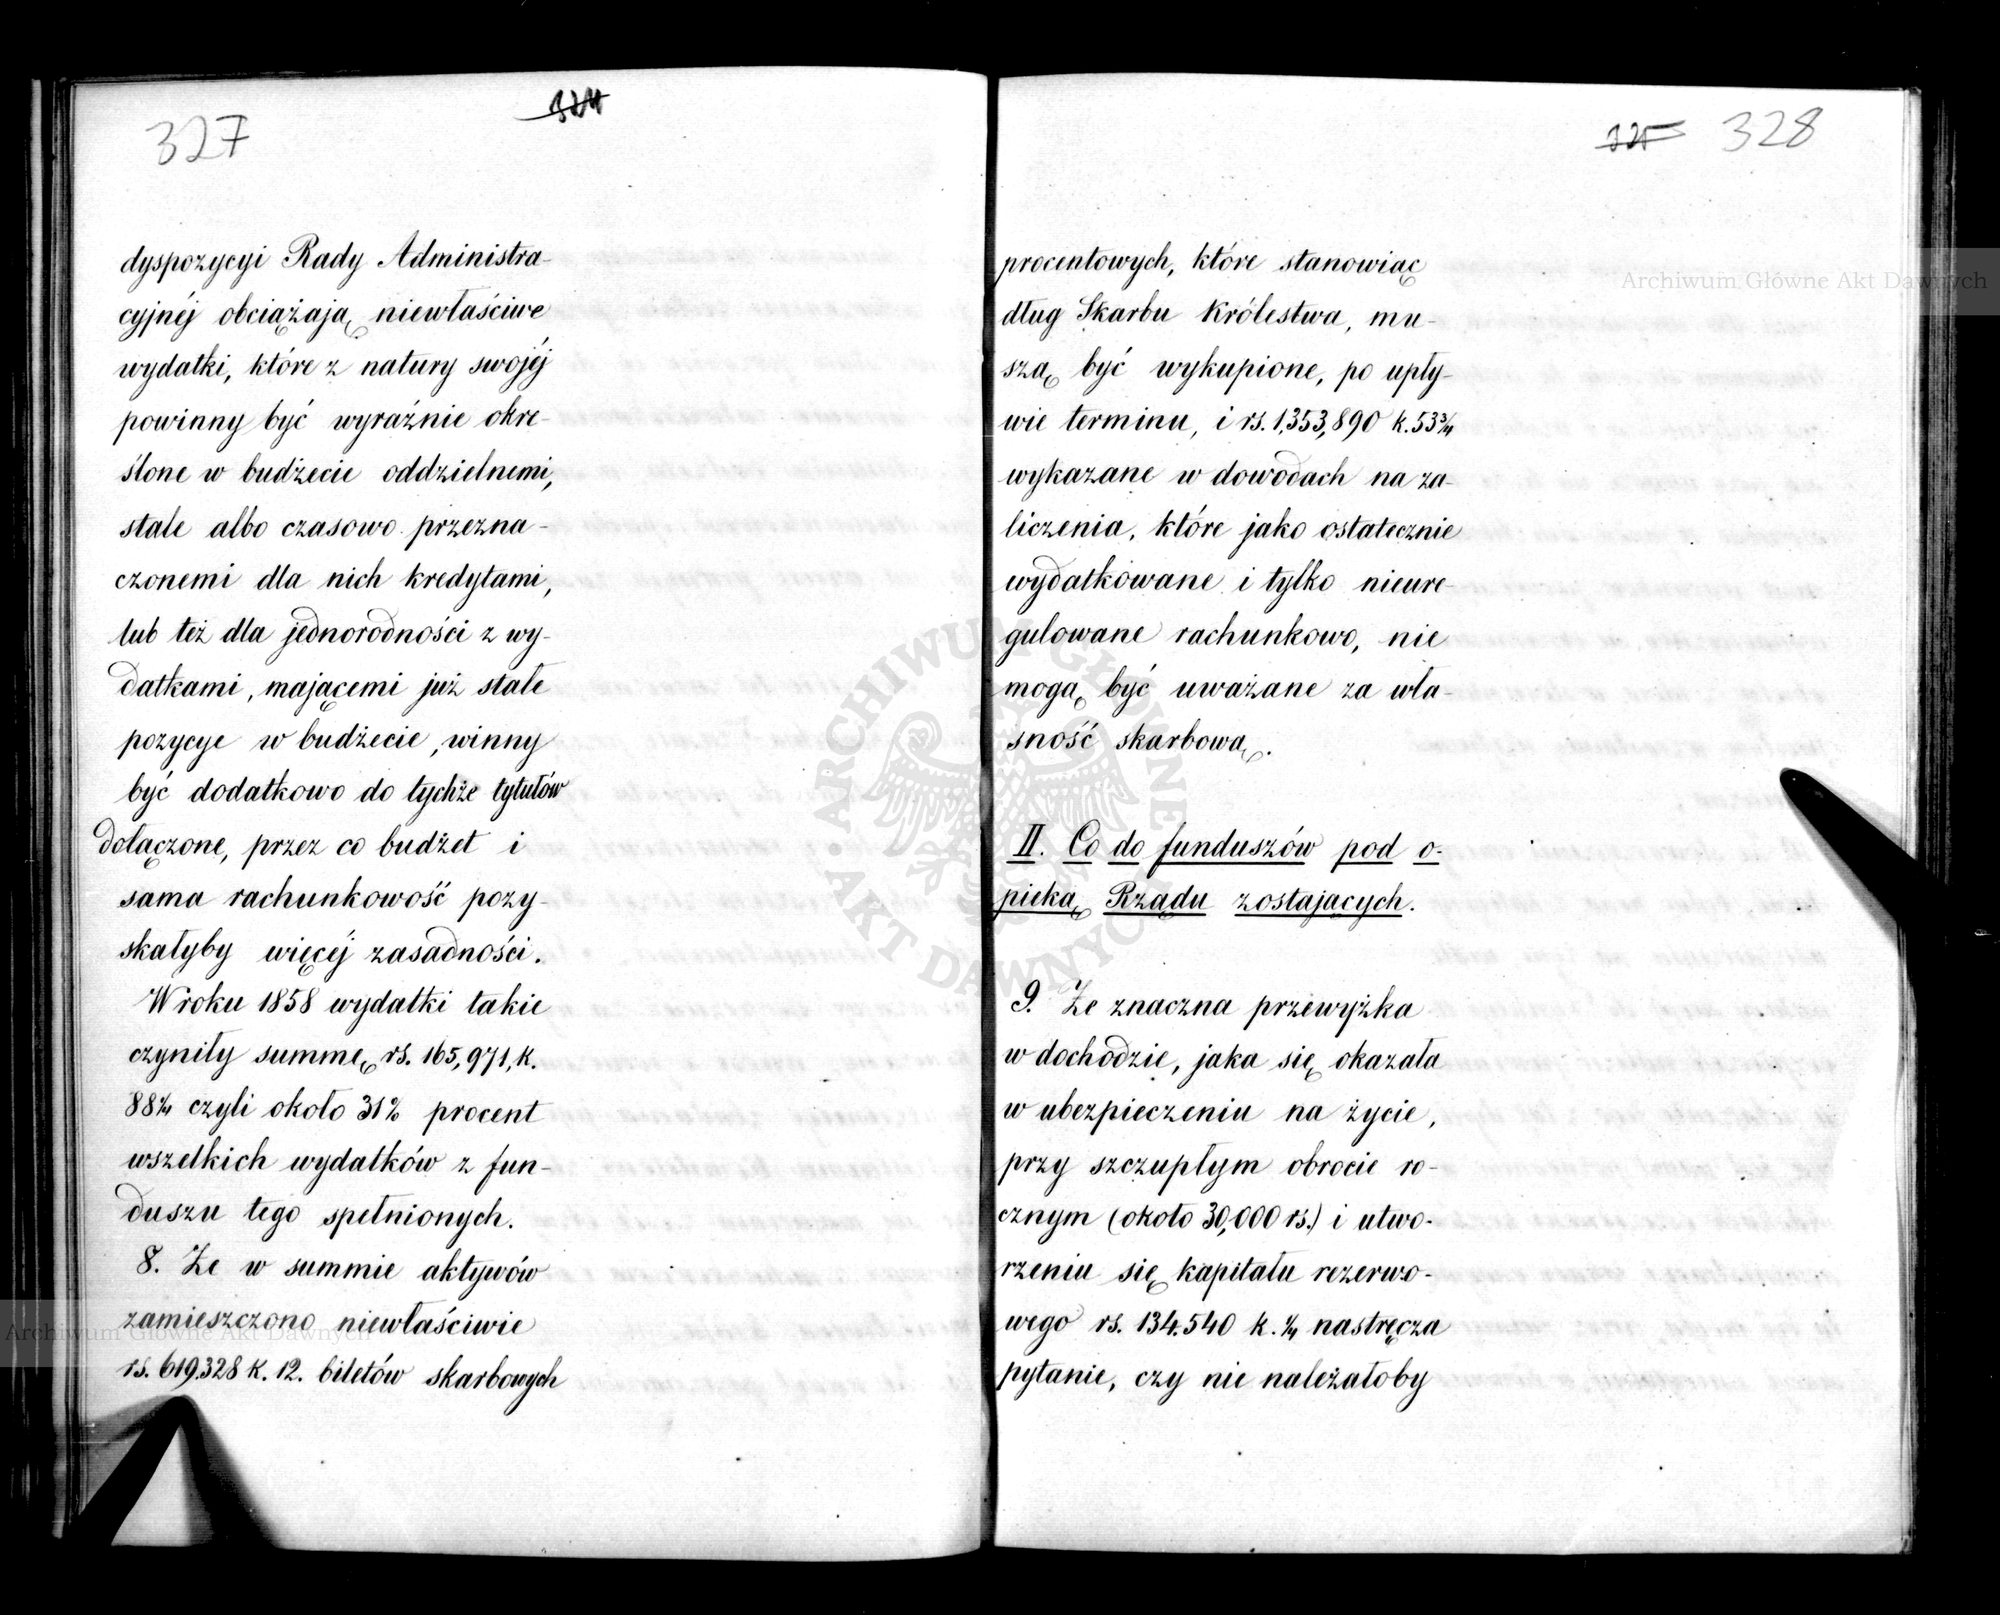 327
324
dyspozycyi Rady Administra-
cyjnéj obciążają niewłaściwe
wydatki, które z natury swojéj
powinny być wyraźnie okre-
ślone w budżecie oddzielnemi,
stale albo czasowo przezna-
czonemi dla nich kredytami,
lub też dla jednorodności z wy-
datkami, mającemi już stałe
pozycye w budżecie, winny
być dodatkowo do tychże tytułów
dołączone, przez co budżet i
sama rachunkowość pozy-
skałyby więcéj zasadności.
W roku 1858 wydatki takie
czyniły summę rs. 165,971, k.
88¼ czyli około 31% procent
wszelkich wydatków z fun-
duszu tego spełnionych.
8. Że w summie aktywów
zamieszczono niewłaściwie
rs. 619.328 k. 12. biletów skarbowych
325 328
procentowych, które stanowiąc
dług Skarbu Królestwa, mu-
szą być wykupione, po upły-
wie terminu, i rs. 1,353,890 k. 53¾
wykazane w dowodach na za-
liczenia, które jako ostatecznie
wydatkowane i tylko nieure-
gulowane rachunkowo, nie
mogą być uważane za wła-
sność skarbową.
II. Co do funduszów pod o-
pieką Rządu zostających.
9. Że znaczna przewyżka
w dochodzie, jaka się okazała
w ubezpieczeniu na życie,
przy szczupłym obrocie ro-
cznym (około 30,000 rs.) i utwo-
rzeniu się kapitału rezerwo-
wego rs. 134.540 k. ¼ nastręcza
pytanie, czy nie należałoby
Archiwum Główne Akt Dawnych
Archiwum Główne Akt Dawnych
ARCHIWUM GŁÓWNE • AKT DAWNYCH •